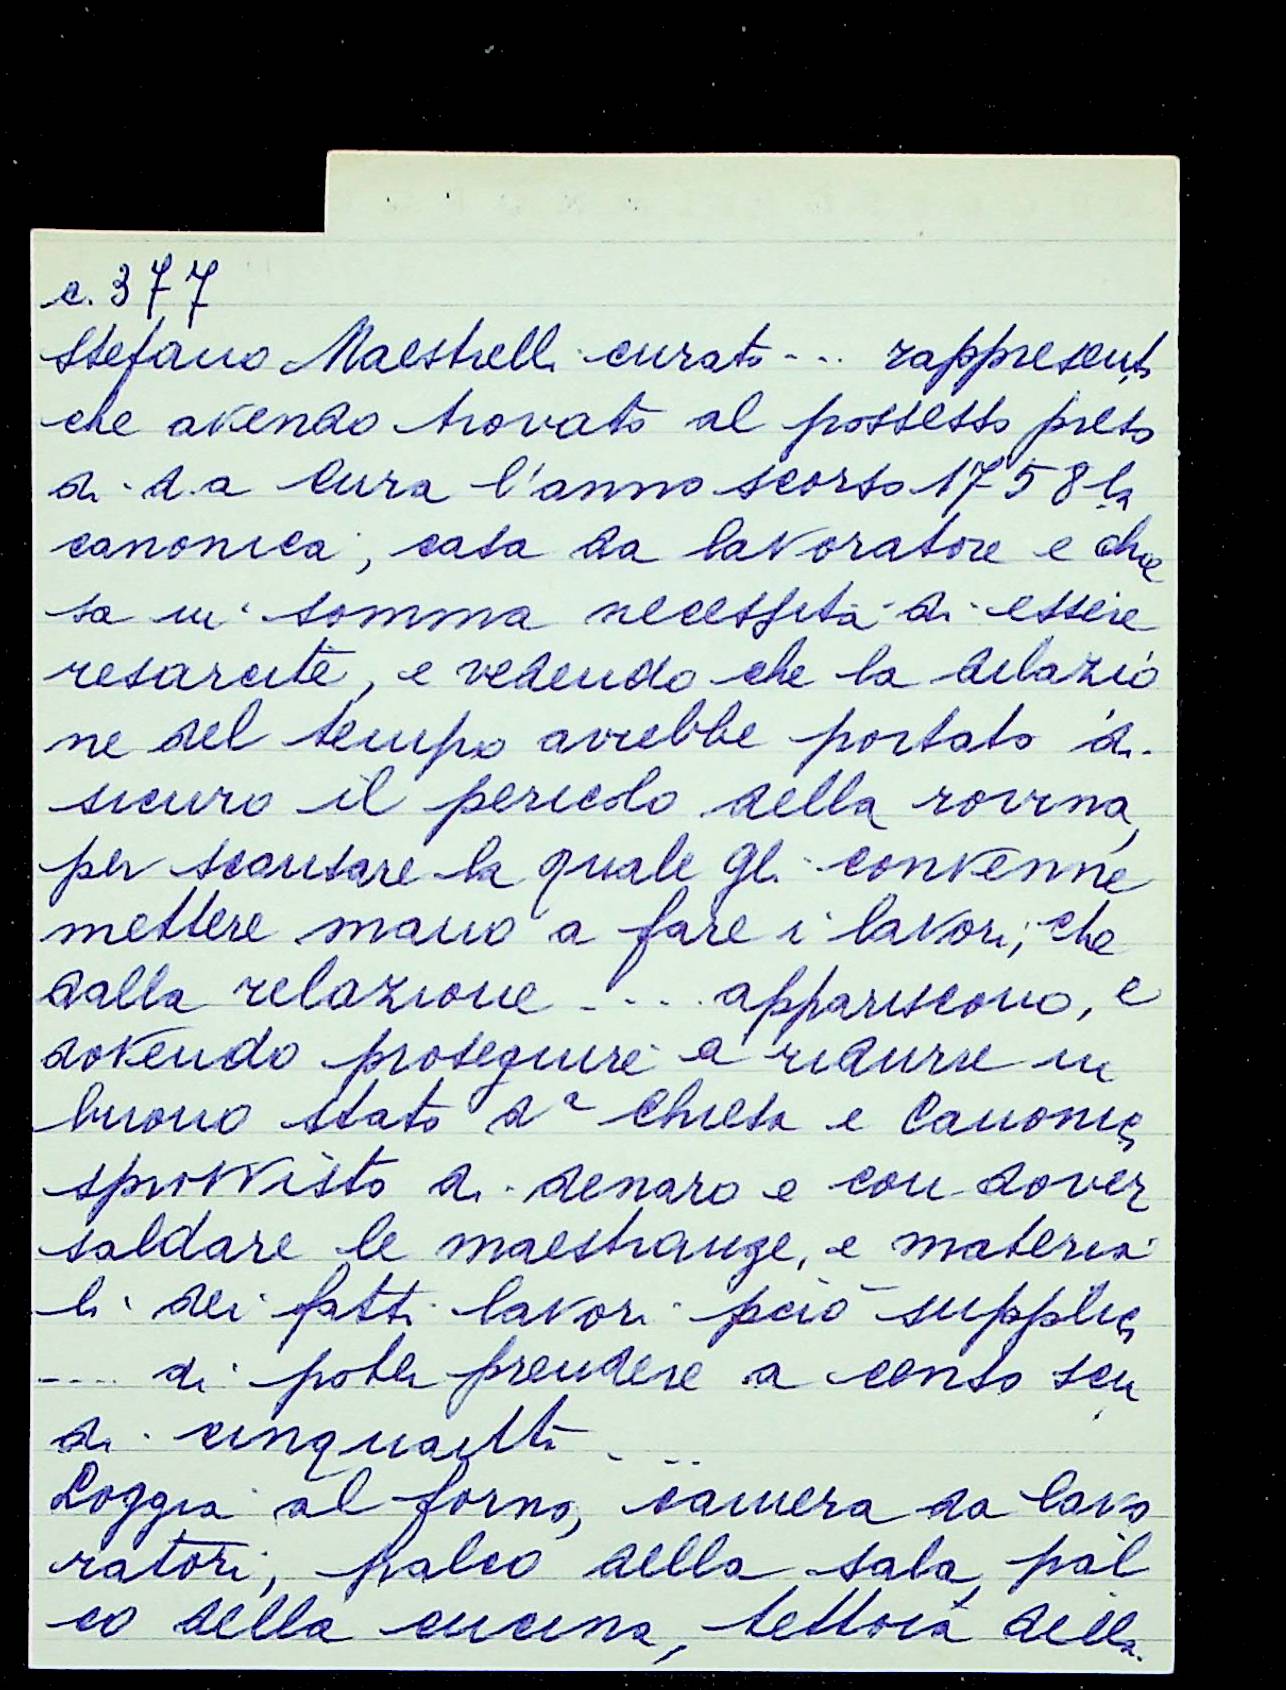 c. 377
Stefano Maestrelli curato --.. rappresenta
che avendo trovato al possesso preso
di d.a Cura l'anno scorso 1758 la
canonica, casa da lavoratore e chie
sa in somma necessità di essere
resarcite, e vedendo che la dilazio
ne del tempo avrebbe portato di
sicuro il pericolo della rovina,
per scansare la quale gli convenne
mettere mano a fare i lavori, che
dalla relazione -... appariscono, e
dovendo proseguire a ridurre in
buono stato dª Chiesa e Canonica
sprovvisto di denaro e con dover
saldare le maestranze, e materia
li dei fatti lavori però supplica
---.. di poter prendere a censo scu
di cinquanta ...
Loggia al forno, camera da lavo
ratori, palco della sala, pal
co della cucina, tettoia della